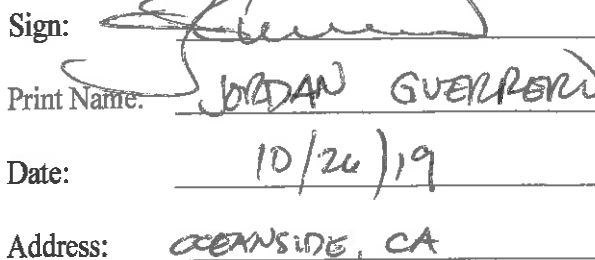 Sign:
Print Name: JORDAN GUERRERO
Date: 10/26/19
Address: OCEANSIDE, CA